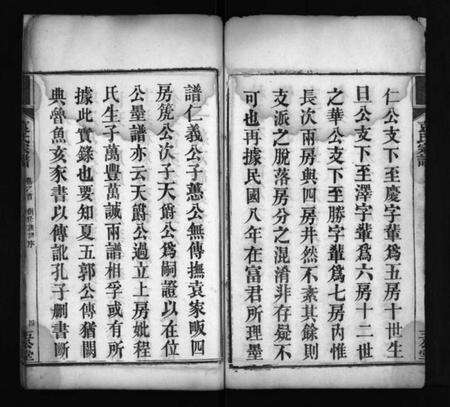 仁公支下至慶字輩爲五房十世生
旦公支下至澤字輩爲六房十二世
之華公支下至勝字輩爲七房內惟
長次兩房與四房井然不紊其餘則
支派之脫落房分之混淆非存疑不
可也再據民國八年在富君所理墨
譜仁義公子憑公無傳撫袁家畈四
房競公次子天爵公爲嗣證以在位
公墨譜亦云天爵公過立上房妣程
氏生子萬豐萬誠兩譜相孚或有所
據此實錄也要知夏五郭公傳猶闕
典魯魚亥家書以傳訛孔子刪書斷